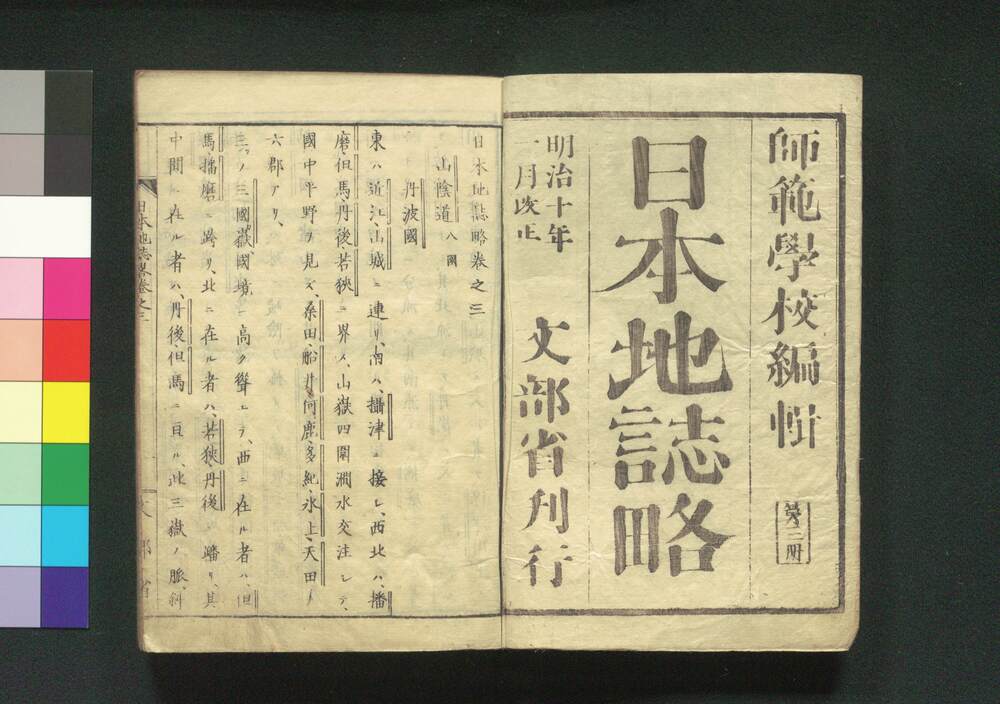 師範學校編輯
第三册
日本地誌略
明治十年
一月改正
文部省刊行
日本地誌略卷之三
山陰道 八國
丹波國
東ハ、近江、山城ニ連リ、南ハ、攝津ニ接シ、西北ハ、播
磨、但馬、丹後、若狹ニ界ス、山嶽四圍澗水交注シテ、
國中平野ヲ見ズ、桑田、船井、何鹿、多紀、氷上、天田ノ
六郡アリ、
三ノ三國嶽、國境ニ高ク聳エテ、西ニ在ル者ハ、但
馬、播磨ニ跨リ、北ニ在ル者ハ、若狹、丹後ニ蟠リ、其
中間ニ在ル者ハ、丹後、但馬ニ亘ル、此三嶽ノ脈、斜
日本地誌略卷之三
文部省